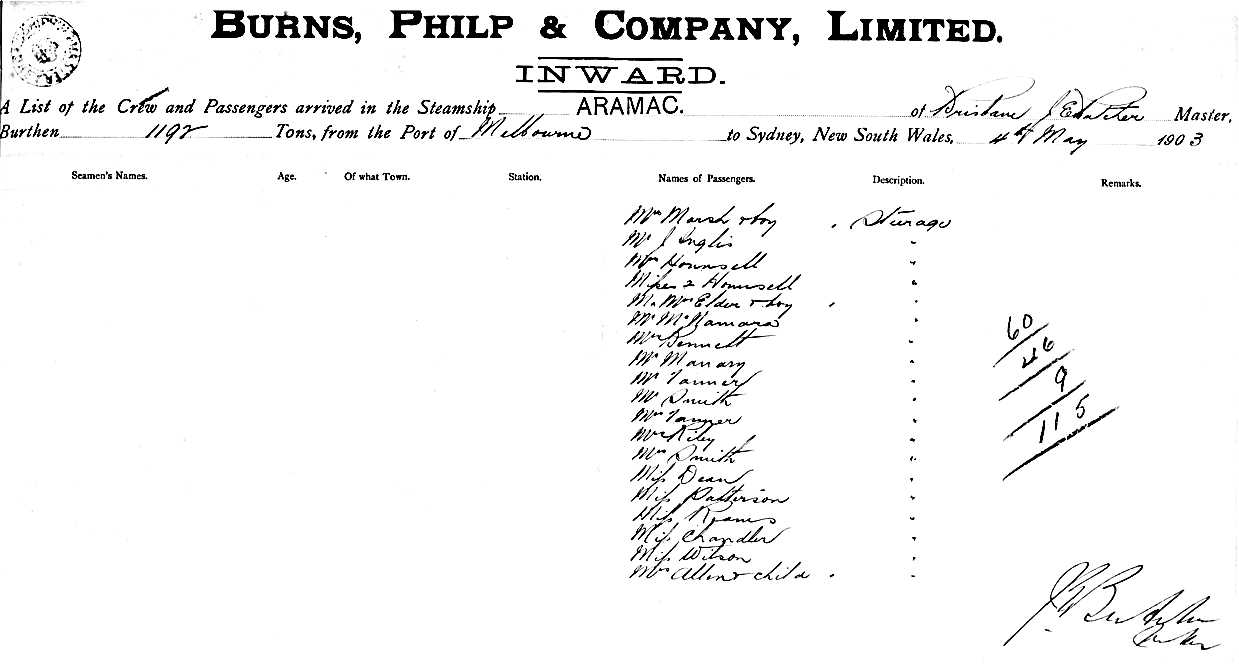 BURNS, PHILP & COMPANY, LIMITED.
INWARD.
A List of the Crew and Passengers arrived in the Steamship ARAMAC. of Brisbane J Master,
Burthen 1192 Tons, from the Port of Melbourne to Sydney, New South Wales, 4th May 1903
Seamen's Names. Age. Of what Town. Station. Names of Passengers. Description. Remarks.
Mrs Marsh & boy Sturage
Mr J Inglis "
Mrs Hounsell "
Misses 2 Hounsell "
Mr Mrs Elder & boy "
Mr McNamara "
Mrs Bennett "
Mr "
Mr Tanner "
Mr Smith "
Mrs Tanner "
Mrs Riley "
Mrs Smith "
Miss Dean "
Miss Patterson "
Miss "
Miss Chandler "
Miss Wilson "
Mrs Allen & child "
60
46
9
115